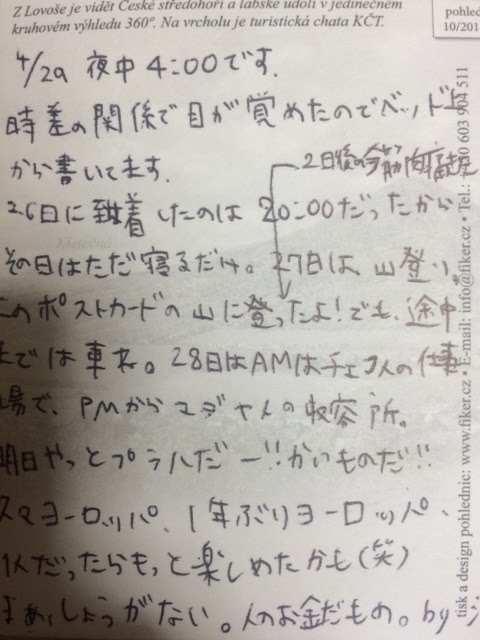 Z Lovoše je vidět České středohoří a labské údolí v jedinečném
kruhovém výhledu 360°. Na vrcholu je turistická chata KČT.
pohled
10/201
4/29 夜中4:00です.
時差の関係で目が覚めたのでベッド上
から書いてます.
2日後の今筋肉痛
26日に到着したのは20:00だったから
その日はただ寝るだけ。27日は、山登り、
このポストカードの山に登ったよ!でも、途中
までは車ネ。28日はAMはチェコ人の仕事
場で、PMからユダヤ人の収容所。
明日やっとプラハだー!!かいものだ!!
スマヨーロッパ、1年ぶりヨーロッパ、
1人だったらもっと楽しめたかも(笑)
まぁ、しょうがない。人のお金だもの。by
tisk a design pohlednic: www.fiker.cz • E-mail: info@fiker.cz • Tel.: 603 904 511